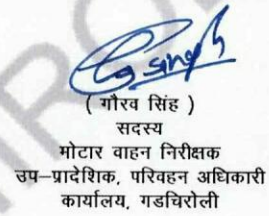 G singh
( गौरव सिंह )
सदस्य
मोटार वाहन निरीक्षक
उप–प्रादेशिक, परिवहन अधिकारी
कार्यालय, गडचिरोली